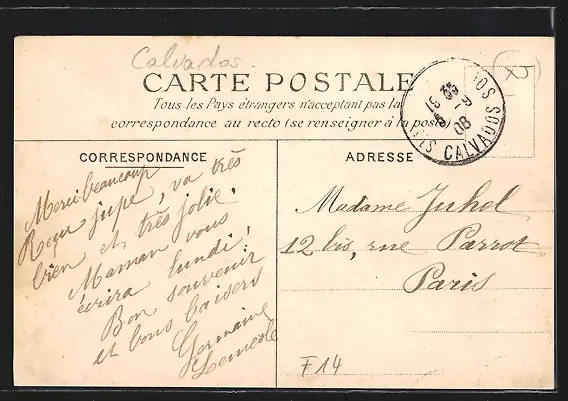 Calvados
CARTE POSTALE
Tous les Pays étrangers n'acceptant pas la
correspondance au recto (se renseigner à la poste)
CORRESPONDANCE
Merci beaucoup
jupe, va très
bien et très jolie.
Maman vous
écrira lundi,
Bon souvenir
et bons baisers
Germaine
ADRESSE
Madame Juhel
12 bis, rue Parrot
Paris
F14
CALVADOS
08